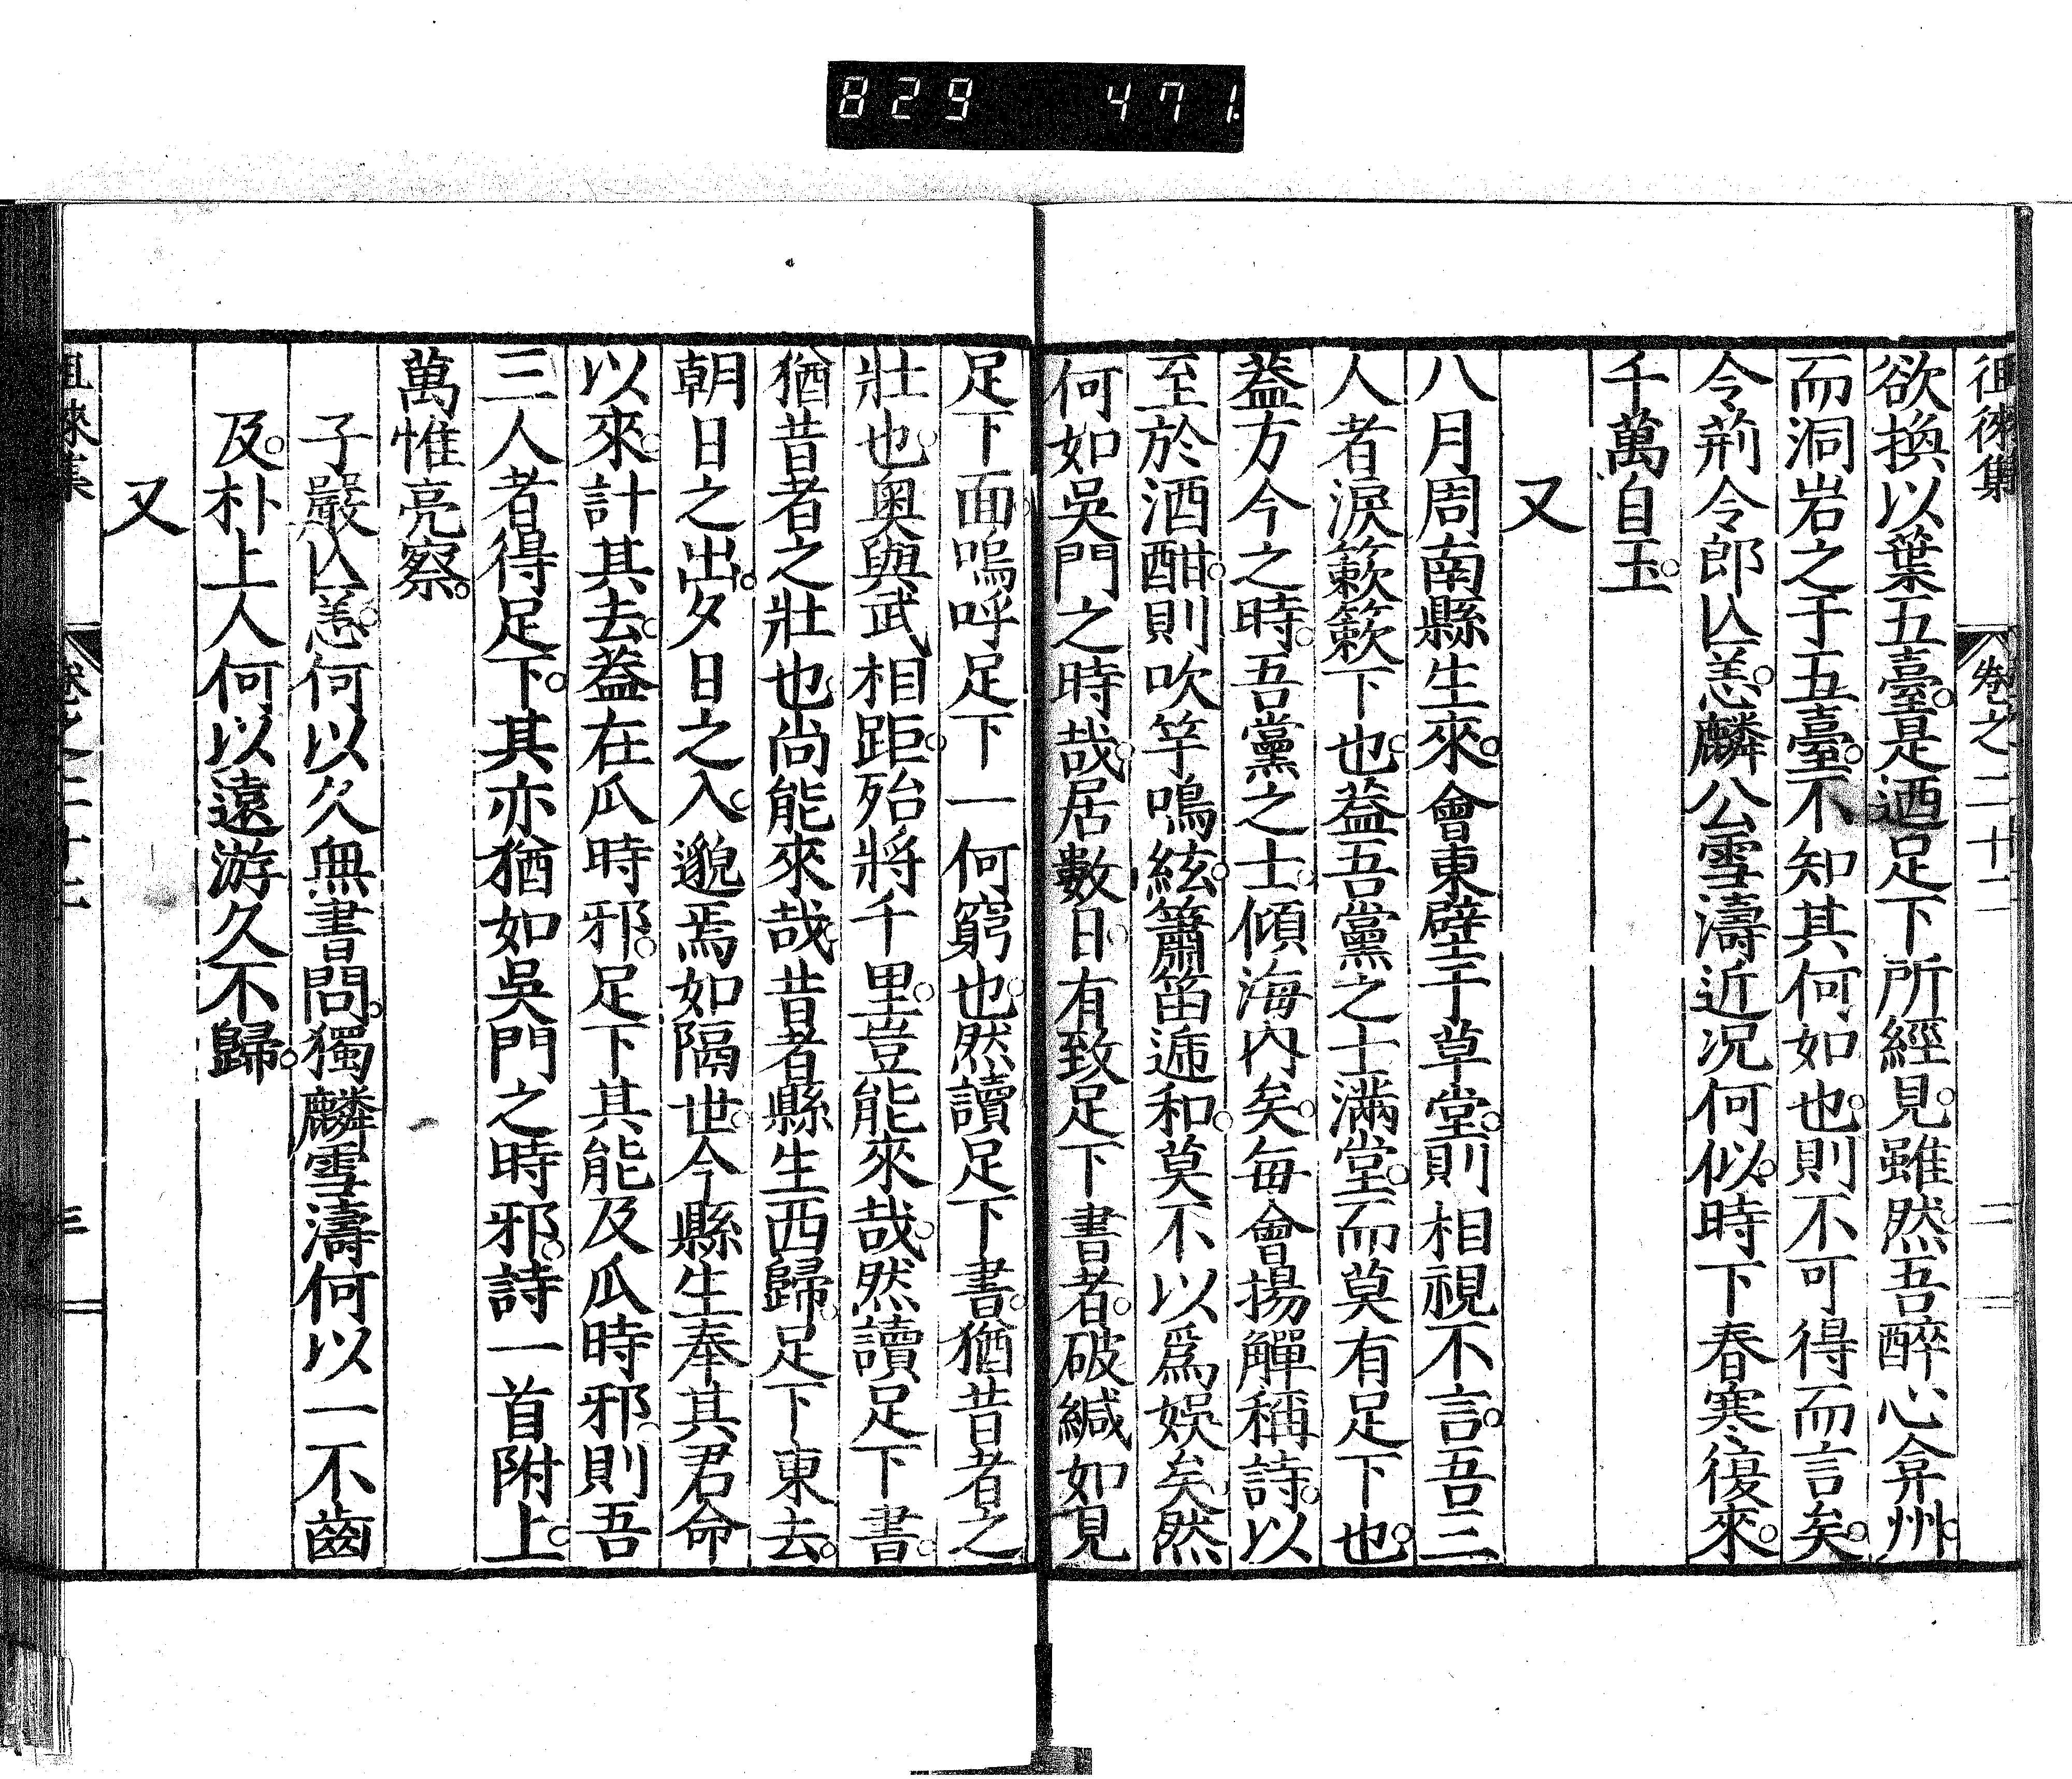 829 471.
徂徠集 卷之二十二 二
欲換以葉五臺。是迺足下所經見。雖然吾醉心弇州。
而洞岩之于五臺。不知其何如也。則不可得而言矣。
令荊令郎亾恙。麟公雪濤近況何似。時下春寒復來。
千萬自玉。
又
八月周南縣生來。會東壁于草堂。則相視不言。吾三
人者淚簌簌下也。葢吾黨之士滿堂。而莫有足下也。
葢方今之時。吾黨之士。傾海內矣。每會揚觶稱詩。以
至於酒酣。則吹竽鳴絃。簫笛遞和。莫不以爲娛矣。然
何如吳門之時哉。居數日。有致足下書者。破緘如見
足下面。嗚呼足下一何窮也。然讀足下書。猶昔者之
壯也。奧與武相距。殆將千里。豈能來哉。然讀足下書。
猶昔者之壯也。尚能來哉。昔者縣生西歸。足下東去。
朝日之出。夕日之入。邈焉如隔世。今縣生奉其君命
以來。計其去。葢在瓜時邪。足下其能及瓜時邪。則吾
三人者得足下。其亦猶如吳門之時邪。詩一首附上。
萬惟亮察。
子嚴亾恙。何以久無書問。獨麟雪濤何以一不齒
及。朴上人何以遠游久不歸。
又
徂徠集 卷之二十二 三